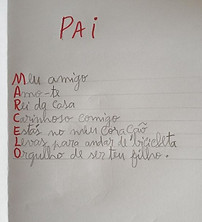 PAi
Meu amigo
Amo-te
Rei da casa
Carinhoso comigo
Estás no meu coração
Levas para andar de bicicleta
Orgulho de ser teu filho.